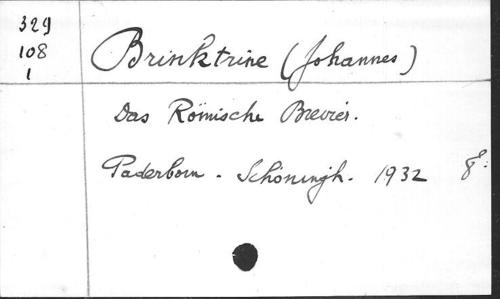 329
108
1
Brinktrine (Johannes)
Das Römische Brevier.
Paderborn - Schöningh. 1932 8º.